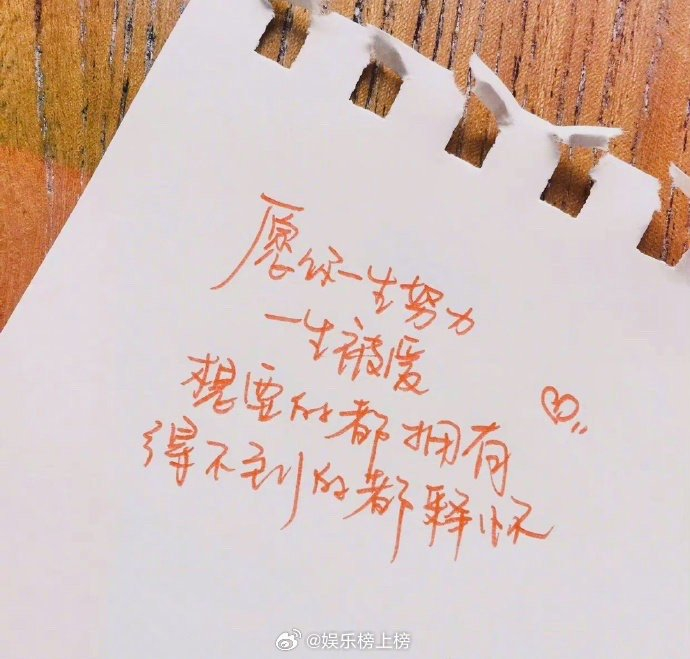 愿你一生努力
一生被爱
想要的都拥有
得不到的都释怀
@娱乐榜上榜